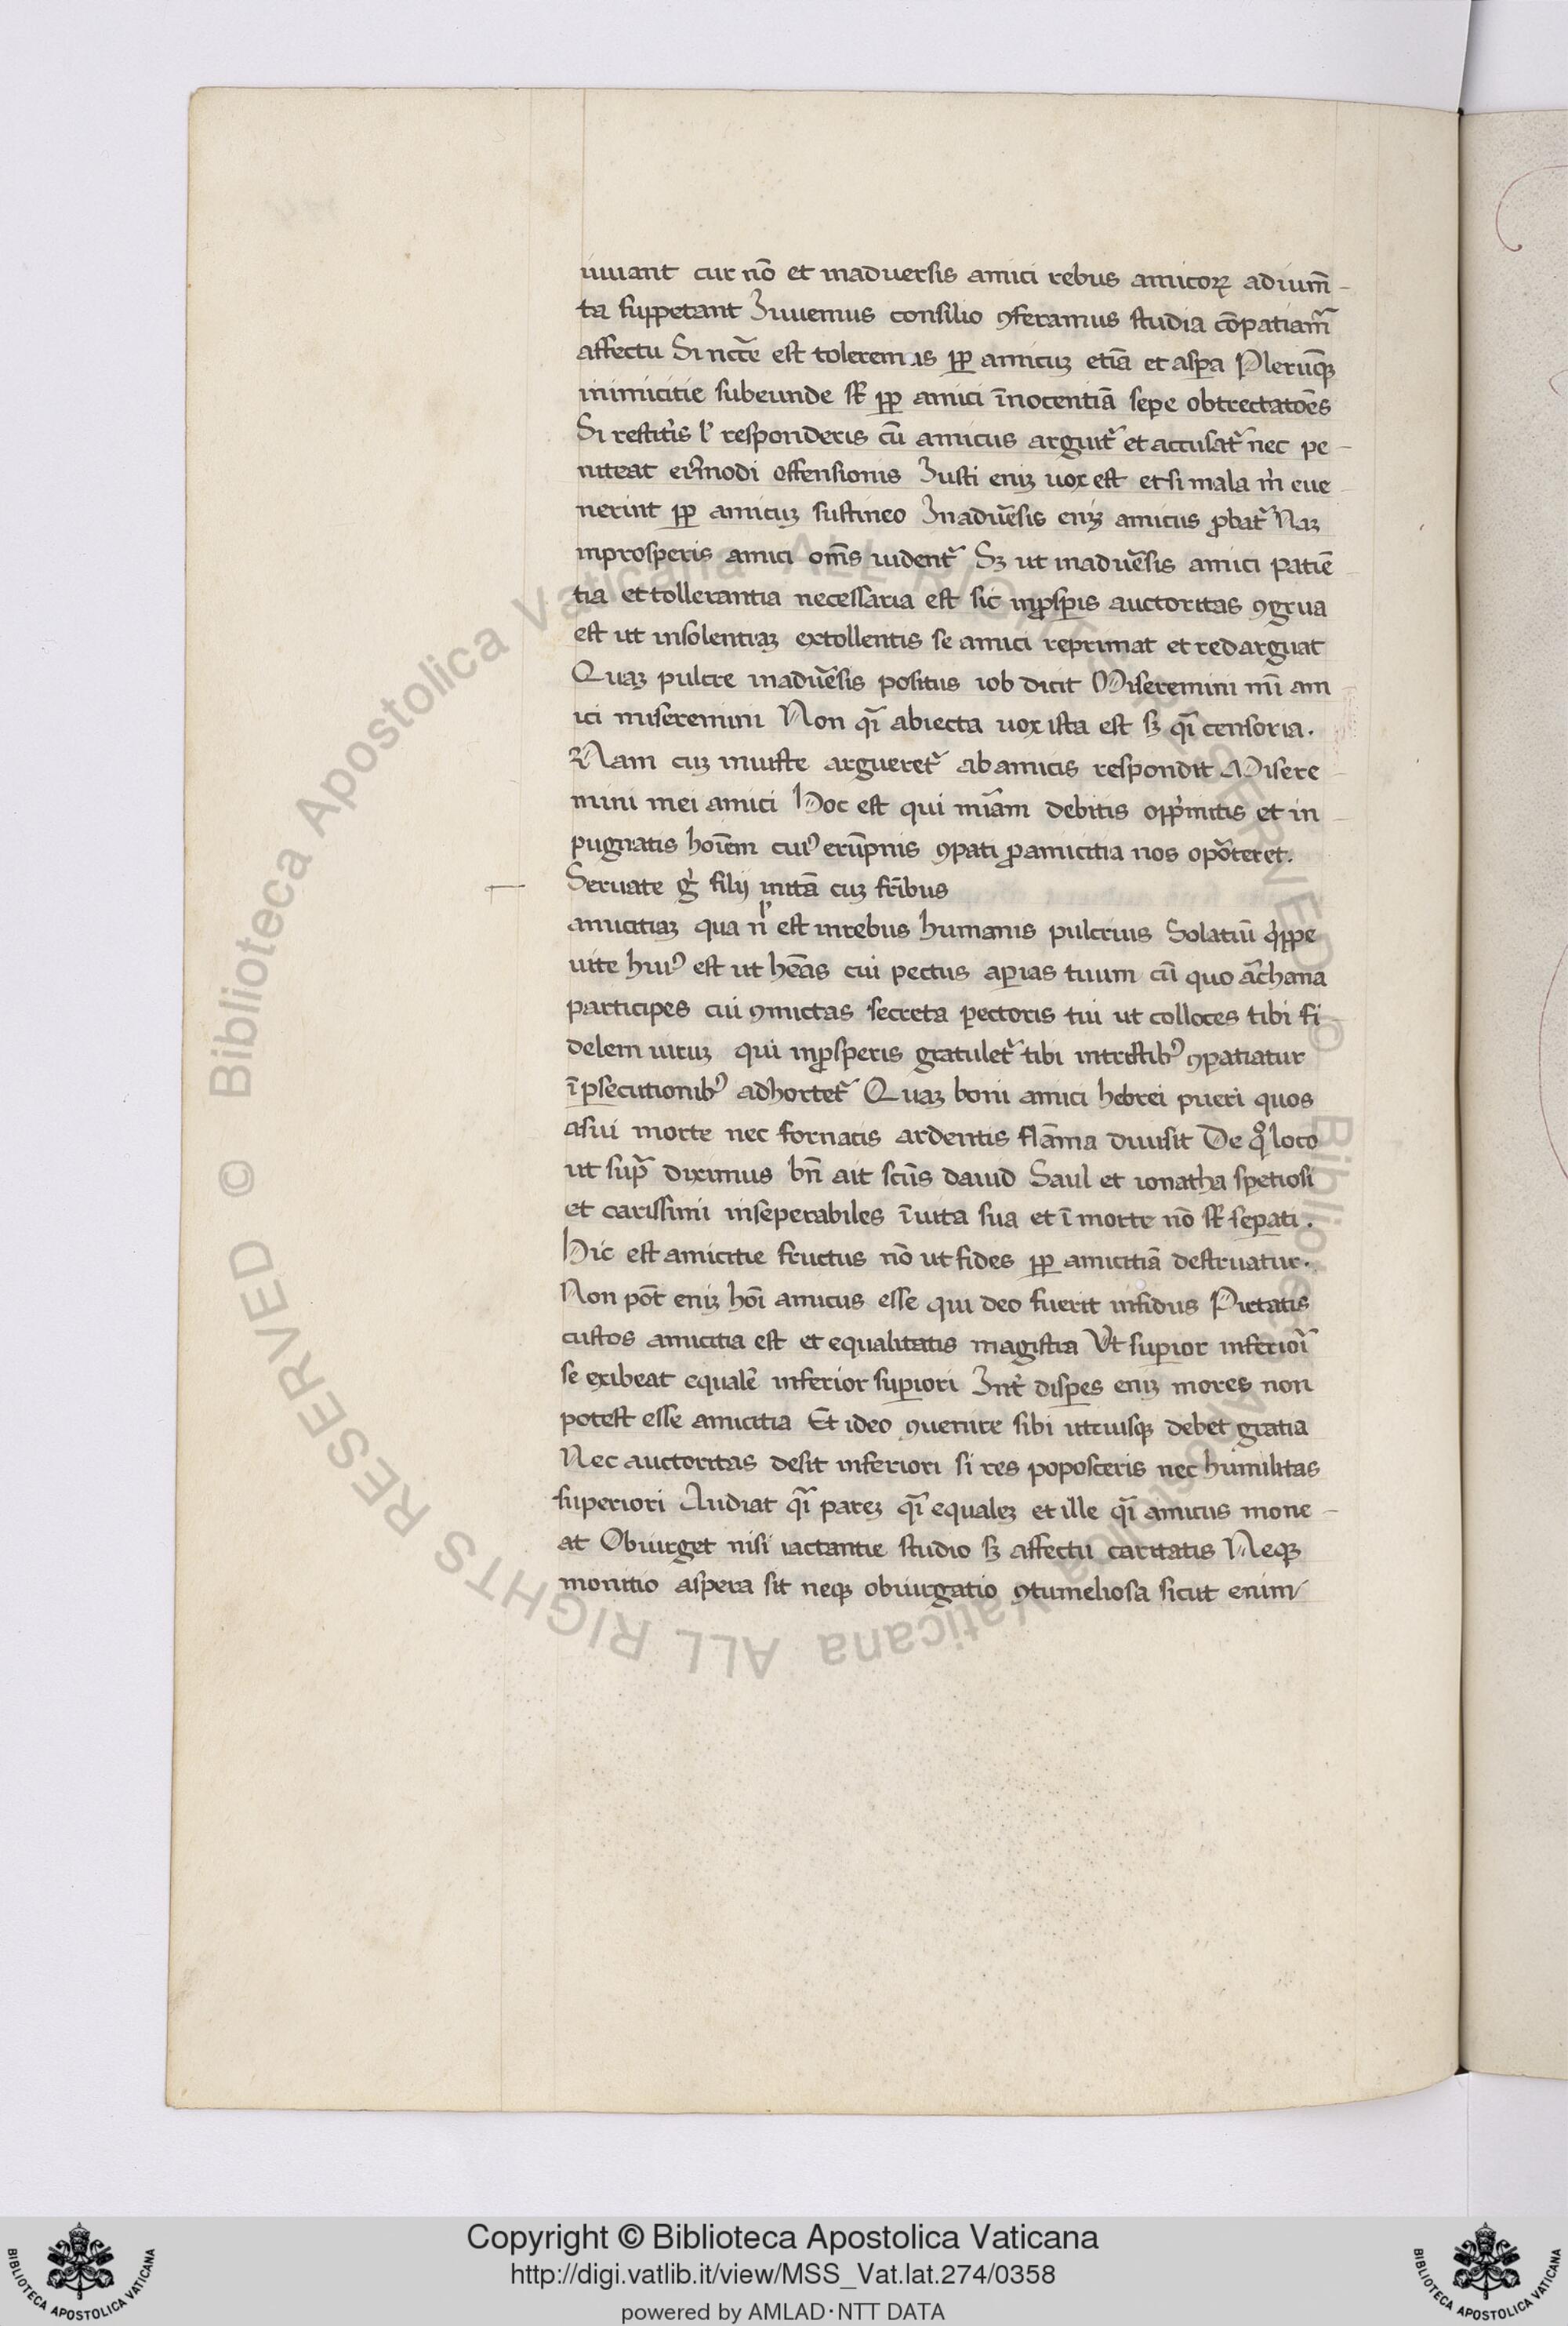 iuuant cur nõ et inaduersis amici rebus amicoꝝ adium̃
ta suppetant Iuuemus consilio ꝯferamus studia cõpatiam᷑
affectu Si nccẽ est toleremus ꝓp amicuꝫ etiã et aspa Plerũqꝫ
inimicitie subeunde st̃ ꝓp amici ĩnocentiã sepe obtrectatõẽs
Si restit̓is lˀ responderis cũ amicus arguit᷑ et accusat᷑ nec pe
niteat eiꝰmodi offensionis Iusti eniꝫ uox est et si mala m̓ eue
nerint ꝓp amicuꝫ sustineo Inadũsis eniꝫ amicus ꝓbat᷑ Naꝫ
inprosperis amici om̃s uident᷑ Sꝫ ut inadũsis amici patiẽ
tia et tollerantia necessaria est sic inꝓsꝑis auctoritas ꝯgrua
est ut insolentiaꝫ extollentis se amici reprimat et redarguat
Quaꝫ pulcre inadũsis positus iob dicit Miseremini mĩ am
ici miseremini Non q̃i abiecta uox ista est sꝫ q̃i censoria.
Nam cuꝫ iniuste argueret᷑ ab amicis respondit Misere
mini mei amici Hoc est qui mĩam debitis opp̓mitis et in
pugnatis hoĩem cuiꝰ erũpnis ꝯpati ꝓamicitia nos opõrteret.
Seruate g̓ filij initã cuꝫ fr̃ibus
amicitiaꝫ qua nˡ̓ est inrebus humanis pulcrius Solatiũ q̓ppe
uite huiꝰ est ut hẽas cui pectus aꝑias tuum cũ quo ar̃chana
participes cui ꝯmictas secreta pectoris tui ut colloces tibi fi
delem uiruꝫ qui inꝓsperis gratulet᷑ tibi intristibꝰ ꝯpatiatur
ĩ ꝑsecutionibꝰ adhortet᷑ Quaꝫ boni amici hebrei pueri quos
asui morte nec fornacis ardentis flãma diuisit De qͦ loco
ut sup̃ diximus bñ ait scũs dauid Saul et ionatha spetiosi
et carissimi inseperabiles ĩ uita sua et ĩ morte nõ st̃ seꝑati.
Hic est amicitie fructus nõ ut fides ꝓp amicitiã destruatur.
Non põt eniꝫ hoĩ amicus esse qui deo fuerit infidus Pietatis
custos amicitia est et equalitatis magistra Vt suꝑior inferiori᷑
se exibeat equalẽ inferior suꝑiori Int̓ disꝑes eniꝫ mores non
potest esse amicitia Et ideo ꝯuenire sibi utriusqꝫ debet gratia
Nec auctoritas desit inferiori si res poposceris nec humilitas
superiori Audiat q̃i pareꝫ q̃i equaleꝫ et ille q̃i amicus mone
at Obiurget nisi iactantie studio sꝫ affectu caritatis Neqꝫ
monitio aspera sit neqꝫ obiurgatio ꝯtumeliosa sicut enim
Copyright © Biblioteca Apostolica Vaticana
http://digi.vatlib.it/view/MSS_Vat.lat.274/0358
powered by AMLAD·NTT DATA
© Biblioteca Apostolica Vaticana ALL RIGHTS RESERVED © Biblioteca Apostolica Vaticana ALL RIGHTS RESERVED
BIBLIOTECA APOSTOLICA VATICANA
BIBLIOTECA APOSTOLICA VATICANA